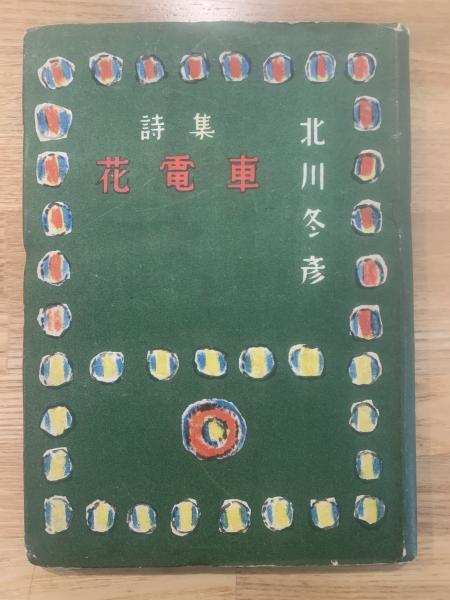 詩集
花電車
北川冬彦